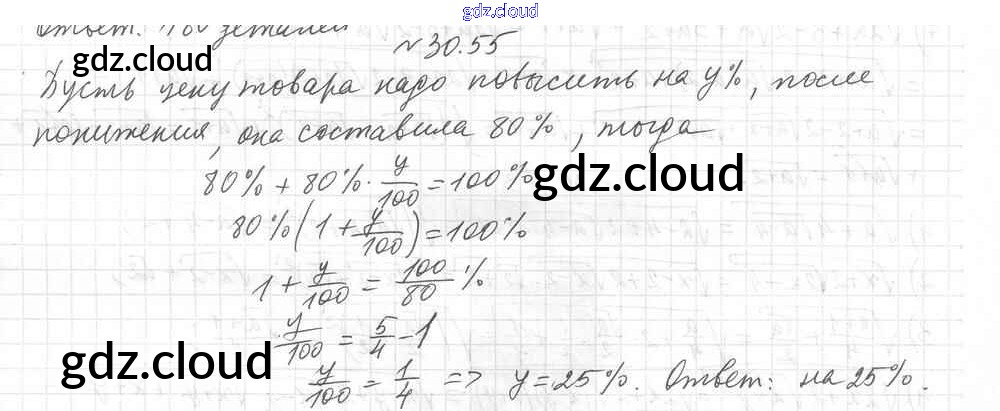 gdz.cloud
Ответ: 180 деталей
gdz.cloud
№30.55
Пусть цену товара надо повысить на y%, после
понижения, она составила 80%, тогда
80% + 80% · y/100 = 100%
gdz.cloud
80% (1 + y/100) = 100%
1 + y/100 = 100/80 %
y/100 = 5/4 - 1
gdz.cloud
gdz.cloud
y/100 = 1/4 => y = 25%. Ответ: на 25%.